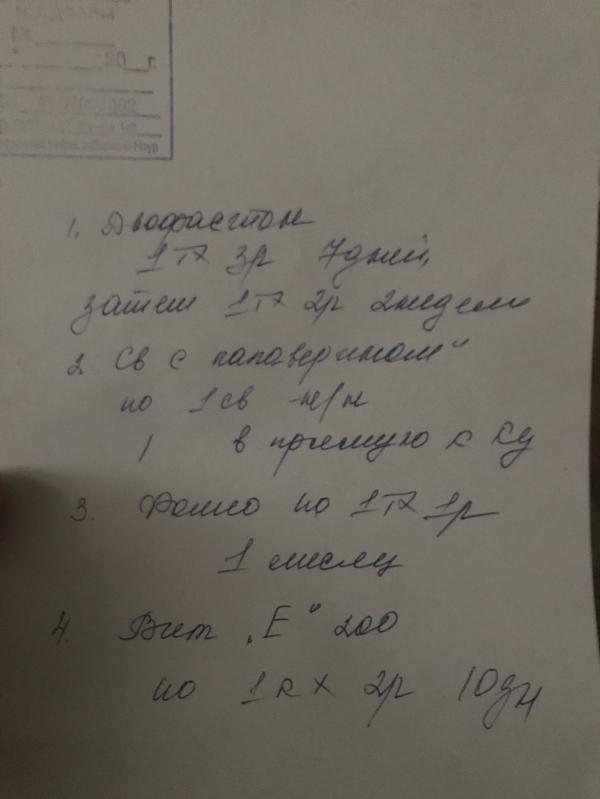 20 г.
1. Дюфастон
1т х 3р 7дней,
затем 1т х 2р 2недели
2 Св с папаверином"
по 1 св н/н
в прямую к ку
3. Фолио по 1т х 1р
1 месяц
4. Вит „Е" 200
по 1к х 2р 10дн